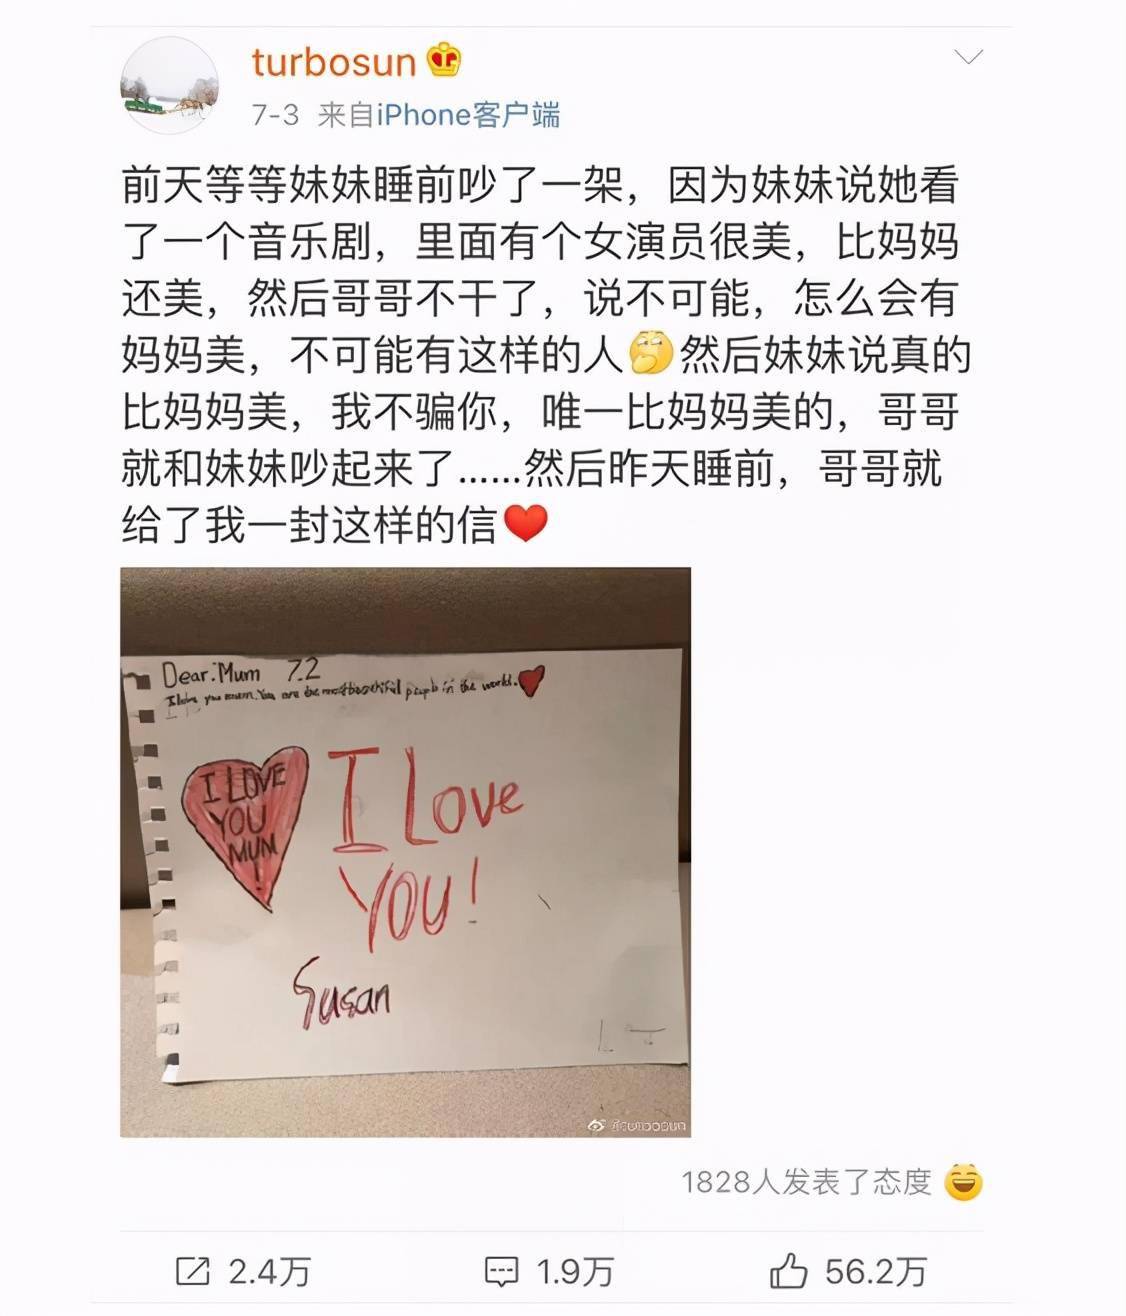 turbosun
7-3 来自iPhone客户端
前天等等妹妹睡前吵了一架，因为妹妹说她看
了一个音乐剧，里面有个女演员很美，比妈妈
还美，然后哥哥不干了，说不可能，怎么会有
妈妈美，不可能有这样的人然后妹妹说真的
比妈妈美，我不骗你，唯一比妈妈美的，哥哥
就和妹妹吵起来了……然后昨天睡前，哥哥就
给了我一封这样的信
Dear:Mum 7.2
I love you mum. You are the most beautiful people in the world.
I LOVE
YOU
MUM
!
I Love
YOU!
Susan
@turbosun
1828人发表了态度
2.4万 1.9万 56.2万